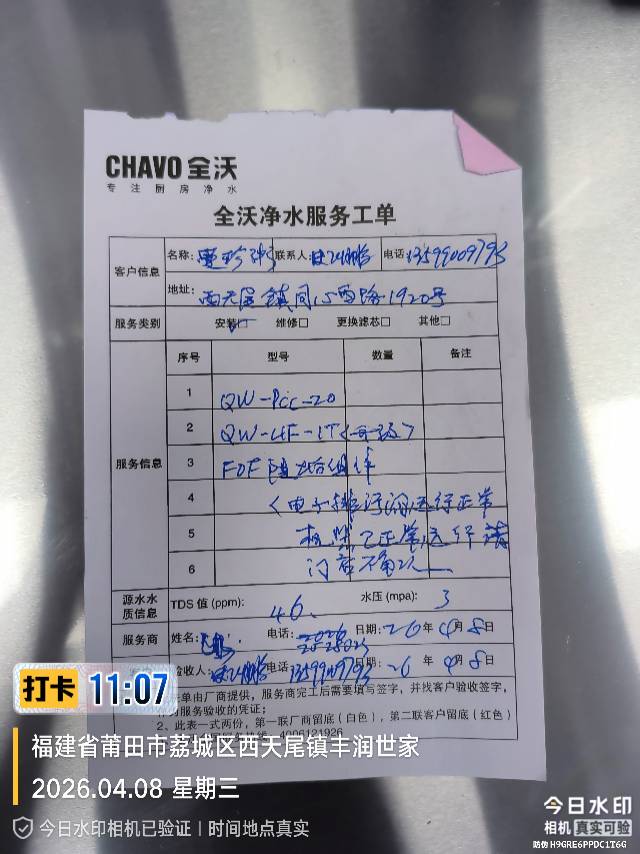 CHAVO 全沃
专注厨房净水
全沃净水服务工单
客户信息
名称: 联系人: 电话: 13599009793
地址: 西天尾镇 1920号
服务类别 安装 维修□ 更换滤芯□ 其他□
服务信息
序号 型号 数量 备注
1 QW-PCC-20
2 QW-UF-1T
3 FDF 组件
4 <电子排污阀运行正常
5 已正常运行请
6 门店确认
源水水质信息 TDS 值 (ppm): 46. 水压 (mpa): 3
服务商 姓名: 电话: 日期: 26年 4月 8日
验收人: 电话: 13599009793 日期: 26 年 4月 8日
单由厂商提供,服务商完工后需要填写签字,并找客户验收签字,
服务验收的凭证;
2、此表一式两份,第一联厂商留底(白色),第二联客户留底(红色)
4006121926
打卡 11:07
福建省莆田市荔城区西天尾镇丰润世家
2026.04.08 星期三
今日水印相机已验证 | 时间地点真实
今日水印
相机 真实可验
防伪 H9GRE6PPDC1T6G